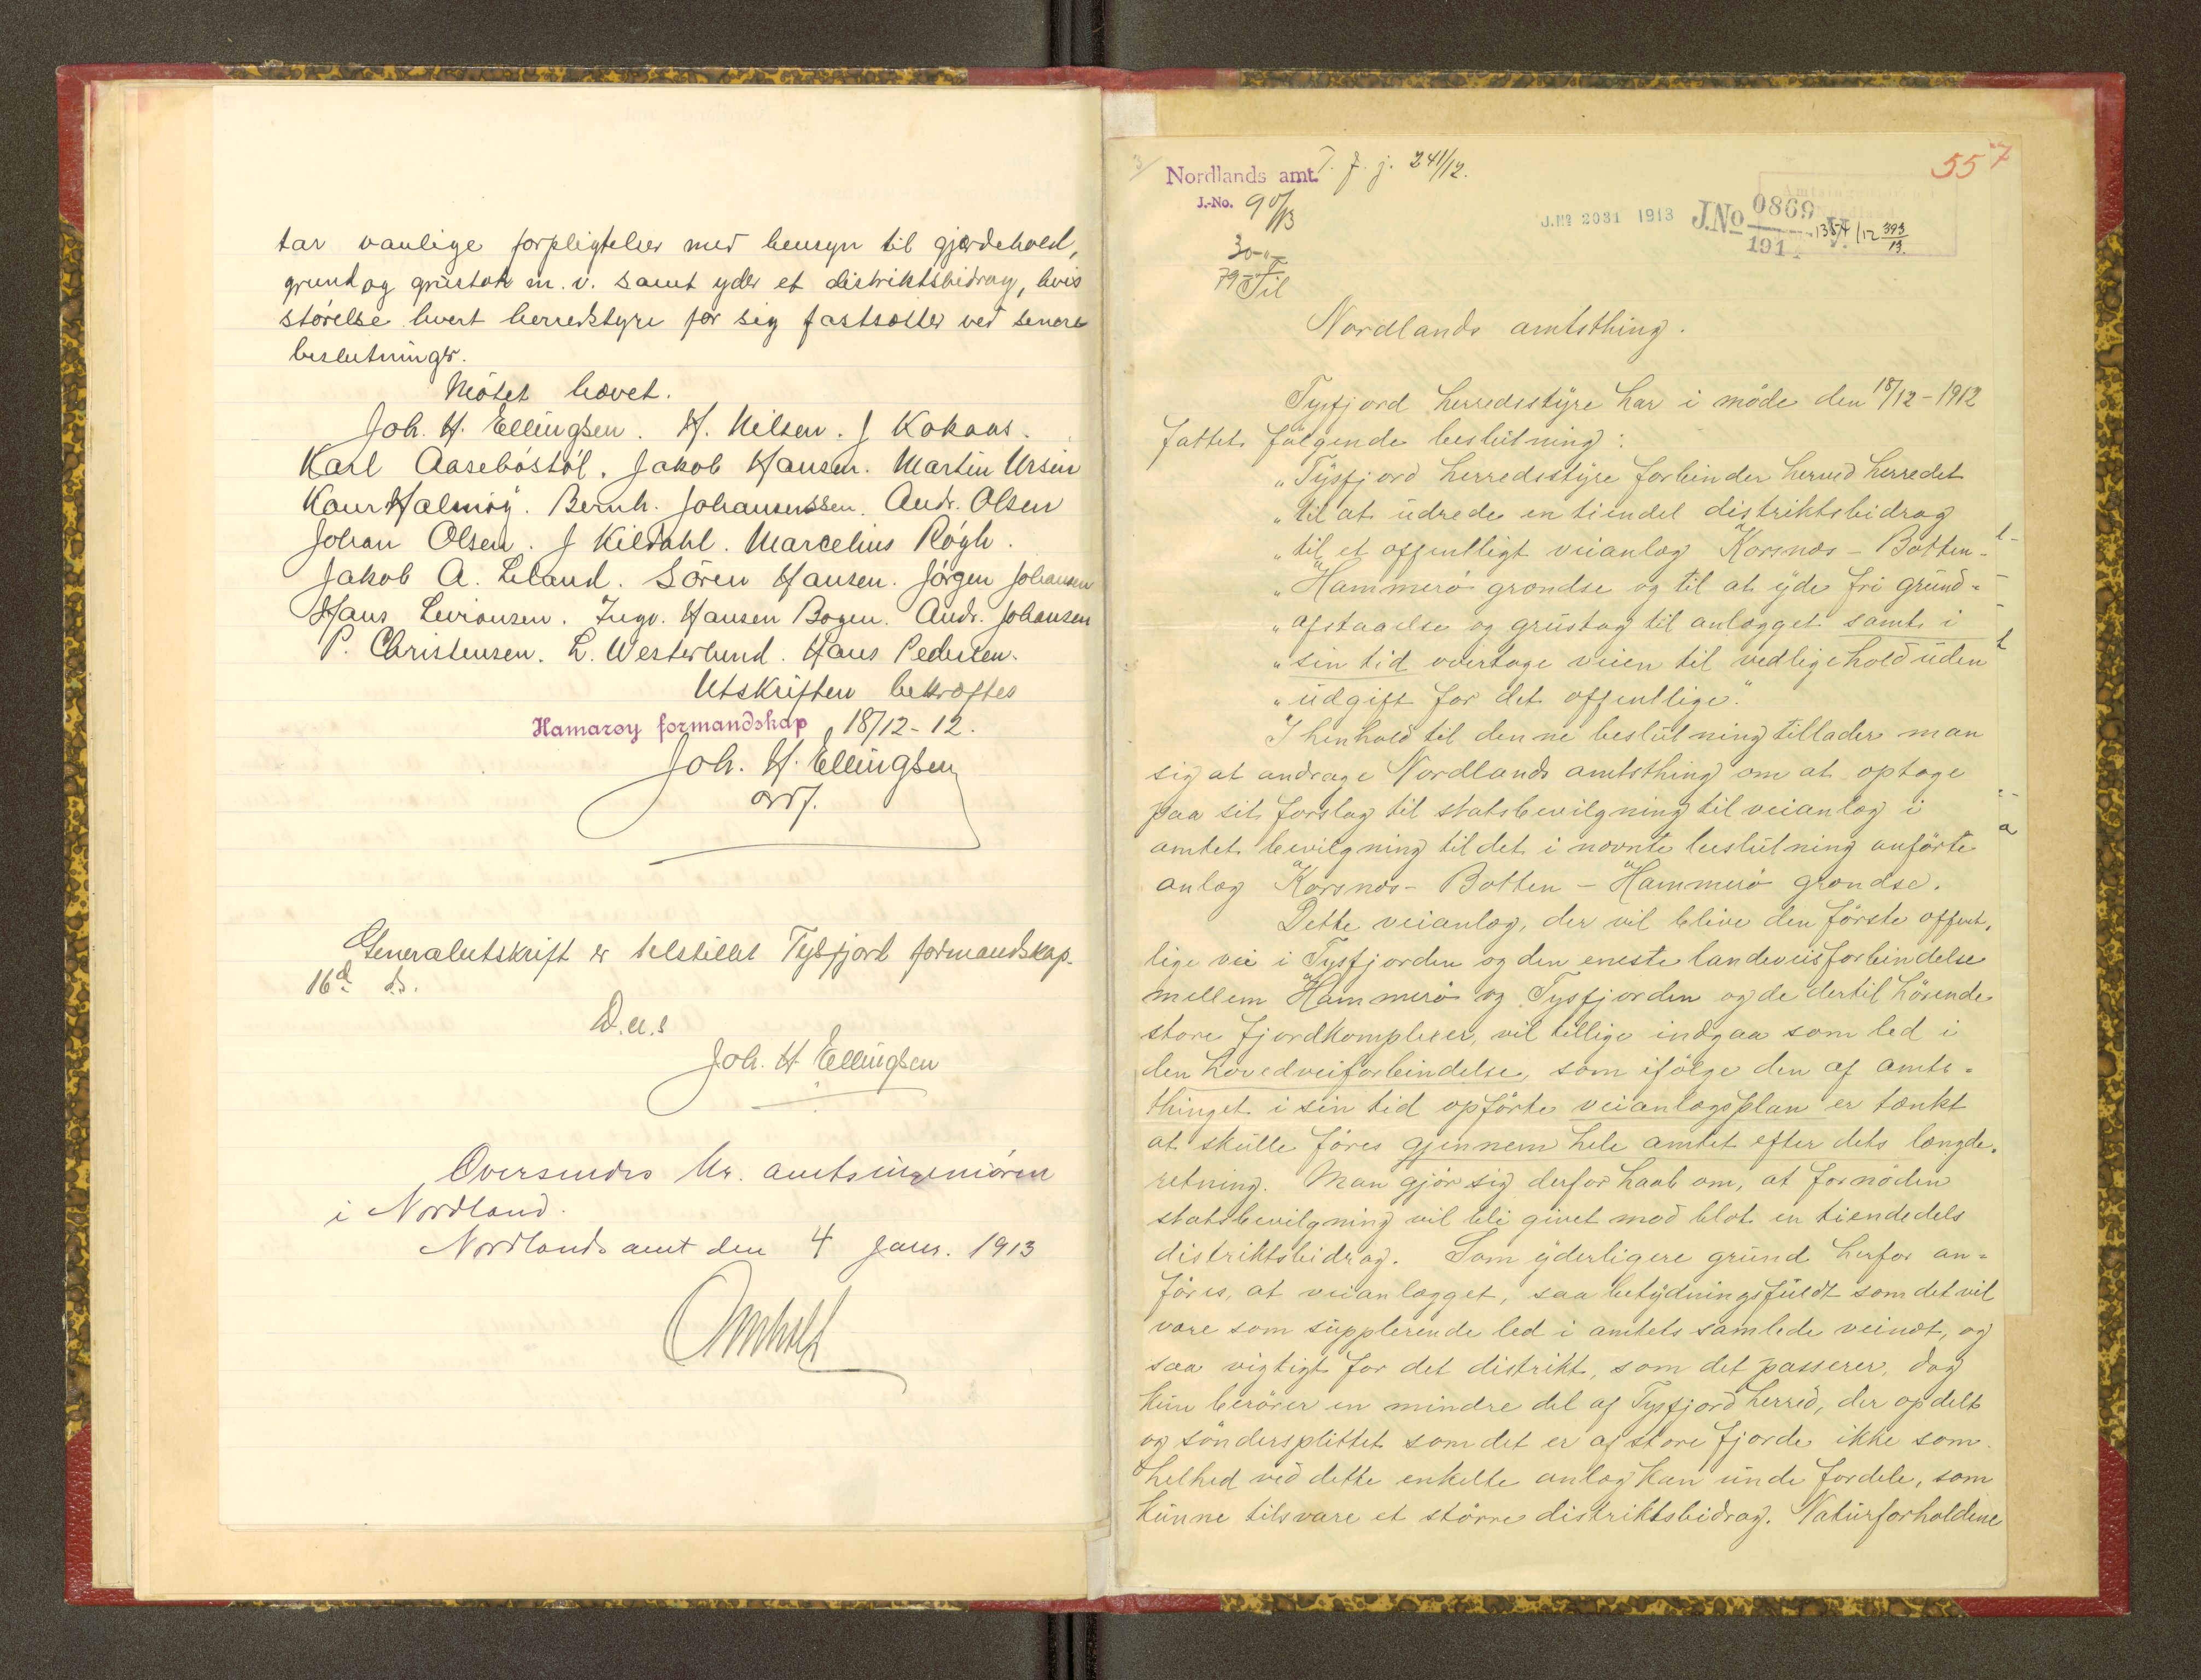 tar vanlige forpligtelser med hensyn til gjærdehold,
grund og grustak m. v. samt yder et distriktsbidrag, hvis
størelse hvert herredstyre for sig fastsætter ved senere
beslutninger.
Møtet hævet.
Joh. H. Ellingsen. H. Nilsen. J Kokaas.
Karl Aasebøstøl. Jakob Hansen. Martin Ursin
Konr Halmøy. Bernh. Johansenssen. Andr. Olsen
Johan Olsen. J Kildahl. Marcelius Røgh.
Jakob A. Leland. Søren Hansen. Jørgen Johansen
Hans Levionsen. Ingv. Hansen Bogen. Andr. Johansen
P. Christensen. L. Westerlund. Hans Pedersen.
Utskriften bekræftes
Hamarøy formandskap, 18/12-12.
Joh. H. Ellingsen
ordf.
Generalutskrift er tilstillet Tysfjord formandskap.
16d. ds.
D.u.s
Joh. H Ellingsen
Oversendes Hr. amtsingeniøren
i Nordland.
Nordlands amt den 4 Janr. 1913
3/
Nordlands amt.
J.-No. 90/13
T. f. j. 241/12.
557
J.No 2031 1913
J.No 0869
191
393
13.
30-
79
Til
Nordlands amtsthing.
Tysfjord herredsstyre har i møde den 18/12-1912
fattet følgende beslutning:
"Tysfjord herredsstyre forbinder herved herredet
"til at udrede en tiendel distriktsbidrag
"til et offentligt veianlæg Korsnæs - Botten -
"Hammerø grændse og til at yde fri grund-
"afstaaelse og grustag til anlægget samt i
"sin tid overtage veien til vedligehold uden
"udgift for det offentlige."
I henhold til denne beslutning tillader man
sig at andrage Nordlands amtsthing om at optage
paa sit forslag til statsbevilgning til veianlæg i
amtet bevilgning til det i nævnte beslutning anførte
anlæg Korsnæs - Botten - Hammerø grændse.
Dette veianlæg, der vil blive den første offent-
lige vei i Tysfjorden og den eneste landeveisforbindelse
mellem Hammerø og Tysfjorden og de dertil hørende
store fjordkomplexer, vil tillige indgaa som led i
den hovedveiforbindelse, som ifølge den af amts-
thinget i sin tid opførte veianlægsplan er tænkt
at skulle føres gjennem hele amtet efter dets længde-
retning. Man gjør sig derfor haab om, at fornøden
statsbevilgning vil bli givet mod blot en tiendedels
distriktsbidrag. Som yderligere grund herfor an-
føres, at veianlægget, saa betydningsfuldt som det vil
være som supplerende led i amtets samlede veinæt, og
saa vigtigt for det distrikt, som det passerer, dog
kun berører en mindre del af Tysfjord herred, der opdelt
og søndersplittet som det er af store fjorde ikke som
helhed ved dette enkelte anlæg kan unde fordele, som
kunne tilsvare et større distriktsbidrag. Naturforholdene